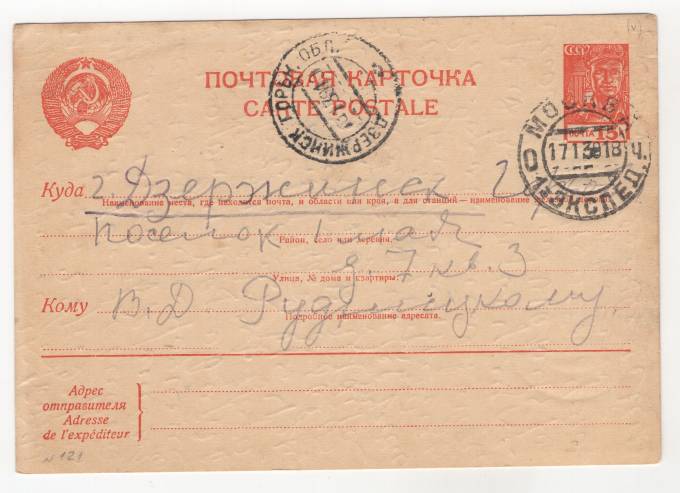 СССР
ПОЧТОВАЯ КАРТОЧКА
CARTE POSTALE
ПОЧТА 15
ДЗЕРЖИНСК ГОРЬК. ОБЛ.
МОСКВА
17 1 39 18 Ч.
ЭКСПЕД.
Куда г. Дзержинск
Наименование места, где находится почта, и области или края, а для станций—наименование
Поселок 1
Район, село или деревня.
д. 7 кв. 3
Улица, № дома и квартиры.
Кому В. Д. Рудницкому
Подробное наименование адресата.
Адрес
отправителя
Adresse
de l'expéditeur
N 121